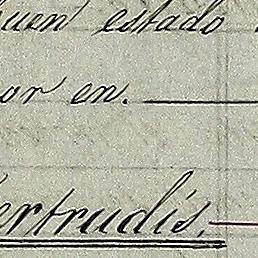 buen estado
or en.
ertrudis.